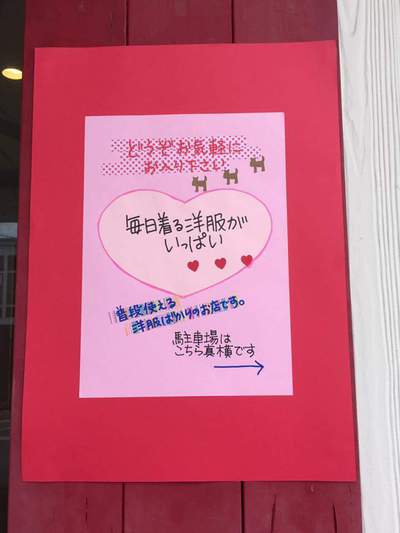 どうぞお気軽に
お入り下さい
毎日着る洋服が
いっぱい
普段使える
洋服ばかりのお店です。
駐車場は
こちら真横です